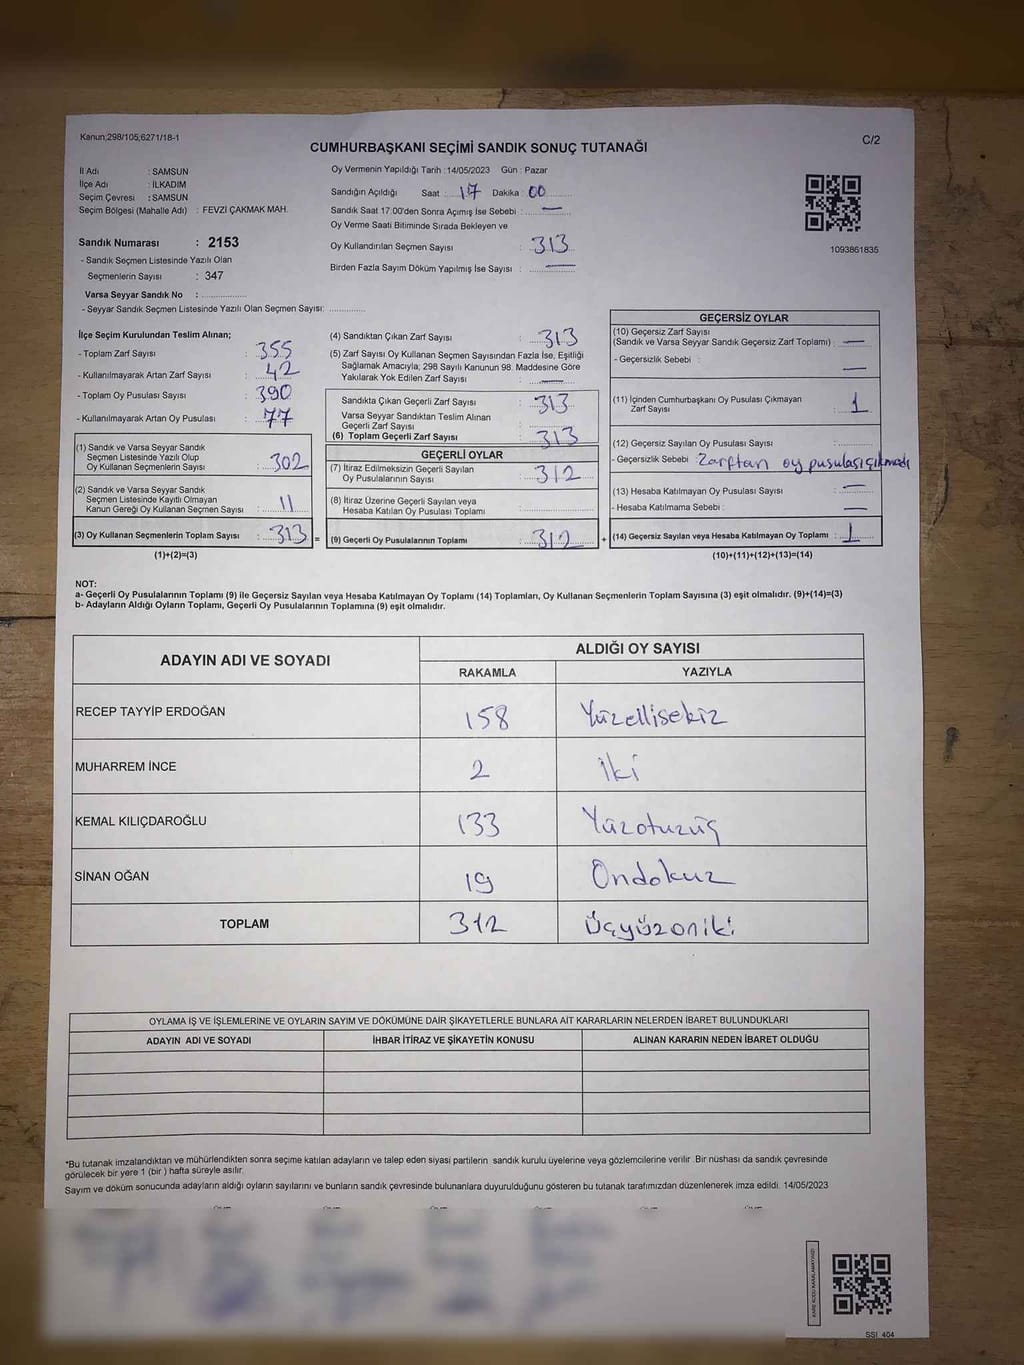 Kanun;298/105,6271/18-1
C/2
CUMHURBAŞKANI SEÇİMİ SANDIK SONUÇ TUTANAĞI
İl Adı : SAMSUN
İlçe Adı : İLKADIM
Seçim Çevresi : SAMSUN
Seçim Bölgesi (Mahalle Adı) : FEVZİ ÇAKMAK MAH.
Sandık Numarası : 2153
- Sandık Seçmen Listesinde Yazılı Olan
Seçmenlerin Sayısı : 347
Varsa Seyyar Sandık No :
- Seyyar Sandık Seçmen Listesinde Yazılı Olan Seçmen Sayısı:
Oy Vermenin Yapıldığı Tarih : 14/05/2023 Gün : Pazar
Sandığın Açıldığı Saat : 17 Dakika : 00
Sandık Saat 17:00'den Sonra Açımış İse Sebebi : —
Oy Verme Saati Bitiminde Sırada Bekleyen ve
Oy Kullandırılan Seçmen Sayısı : 313
Birden Fazla Sayım Döküm Yapılmış İse Sayısı : —
1093861835
İlçe Seçim Kurulundan Teslim Alınan;
- Toplam Zarf Sayısı : 355
- Kullanılmayarak Artan Zarf Sayısı : 42
- Toplam Oy Pusulası Sayısı : 390
- Kullanılmayarak Artan Oy Pusulası : 77
(1) Sandık ve Varsa Seyyar Sandık
Seçmen Listesinde Yazılı Olup
Oy Kullanan Seçmenlerin Sayısı : 302
(2) Sandık ve Varsa Seyyar Sandık
Seçmen Listesinde Kayıtlı Olmayan
Kanun Gereği Oy Kullanan Seçmen Sayısı : 11
(3) Oy Kullanan Seçmenlerin Toplam Sayısı : 313 =
(1)+(2)=(3)
(4) Sandıktan Çıkan Zarf Sayısı : 313
(5) Zarf Sayısı Oy Kullanan Seçmen Sayısından Fazla İse, Eşitliği
Sağlamak Amacıyla; 298 Sayılı Kanunun 98. Maddesine Göre
Yakılarak Yok Edilen Zarf Sayısı : —
Sandıkta Çıkan Geçerli Zarf Sayısı : 313
Varsa Seyyar Sandıktan Teslim Alınan
Geçerli Zarf Sayısı :
(6) Toplam Geçerli Zarf Sayısı : 313
GEÇERLİ OYLAR
(7) İtiraz Edilmeksizin Geçerli Sayılan
Oy Pusulalarının Sayısı : 312
(8) İtiraz Üzerine Geçerli Sayılan veya
Hesaba Katılan Oy Pusulası Toplamı :
(9) Geçerli Oy Pusulalarının Toplamı : 312 +
GEÇERSİZ OYLAR
(10) Geçersiz Zarf Sayısı
(Sandık ve Varsa Seyyar Sandık Geçersiz Zarf Toplamı) : —
- Geçersizlik Sebebi : —
(11) İçinden Cumhurbaşkanı Oy Pusulası Çıkmayan
Zarf Sayısı : 1
(12) Geçersiz Sayılan Oy Pusulası Sayısı :
- Geçersizlik Sebebi : Zarftan oy pusulası çıkmadı
(13) Hesaba Katılmayan Oy Pusulası Sayısı : —
- Hesaba Katılmama Sebebi : —
(14) Geçersiz Sayılan veya Hesaba Katılmayan Oy Toplamı : 1
(10)+(11)+(12)+(13)=(14)
NOT:
a- Geçerli Oy Pusulalarının Toplamı (9) ile Geçersiz Sayılan veya Hesaba Katılmayan Oy Toplamı (14) Toplamları, Oy Kullanan Seçmenlerin Toplam Sayısına (3) eşit olmalıdır. (9)+(14)=(3)
b- Adayların Aldığı Oyların Toplamı, Geçerli Oy Pusulalarının Toplamına (9) eşit olmalıdır.
ADAYIN ADI VE SOYADI
ALDIĞI OY SAYISI
RAKAMLA YAZIYLA
RECEP TAYYİP ERDOĞAN 158 Yüzellisekiz
MUHARREM İNCE 2 İki
KEMAL KILIÇDAROĞLU 133 Yüzotuzüç
SİNAN OĞAN 19 Ondokuz
TOPLAM 312 Üçyüzoniki
OYLAMA İŞ VE İŞLEMLERİNE VE OYLARIN SAYIM VE DÖKÜMÜNE DAİR ŞİKAYETLERLE BUNLARA AİT KARARLARIN NELERDEN İBARET BULUNDUKLARI
ADAYIN ADI VE SOYADI İHBAR İTİRAZ VE ŞİKAYETİN KONUSU ALINAN KARARIN NEDEN İBARET OLDUĞU
*Bu tutanak imzalandıktan ve mühürlendikten sonra seçime katılan adayların ve talep eden siyasi partilerin sandık kurulu üyelerine veya gözlemcilerine verilir. Bir nüshası da sandık çevresinde
görülecek bir yere 1 (bir ) hafta süreyle asılır.
Sayım ve döküm sonucunda adayların aldığı oyların sayılarını ve bunların sandık çevresinde bulunanlara duyurulduğunu gösteren bu tutanak tarafımızdan düzenlenerek imza edildi. 14/05/2023
KARE KODU KARALAMAYINIZ!
SSI_404